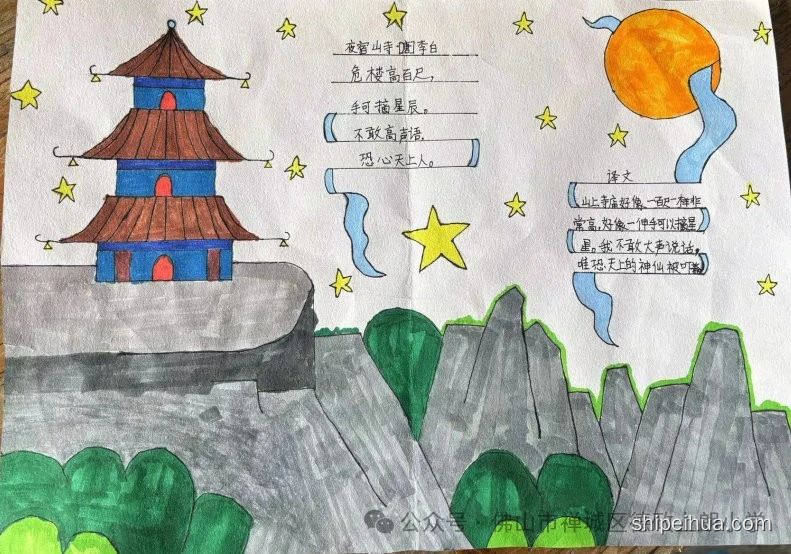 夜宿山寺 唐李白
危楼高百尺，
手可摘星辰。
不敢高声语，
恐心天上人。
译文
山上寺庙好像一百尺一样非
常高，好像一伸手可以摘星
星。我不敢大声说话，
唯恐天上的神仙被吓着
公众号·佛山市禅城区
shipeihua.com